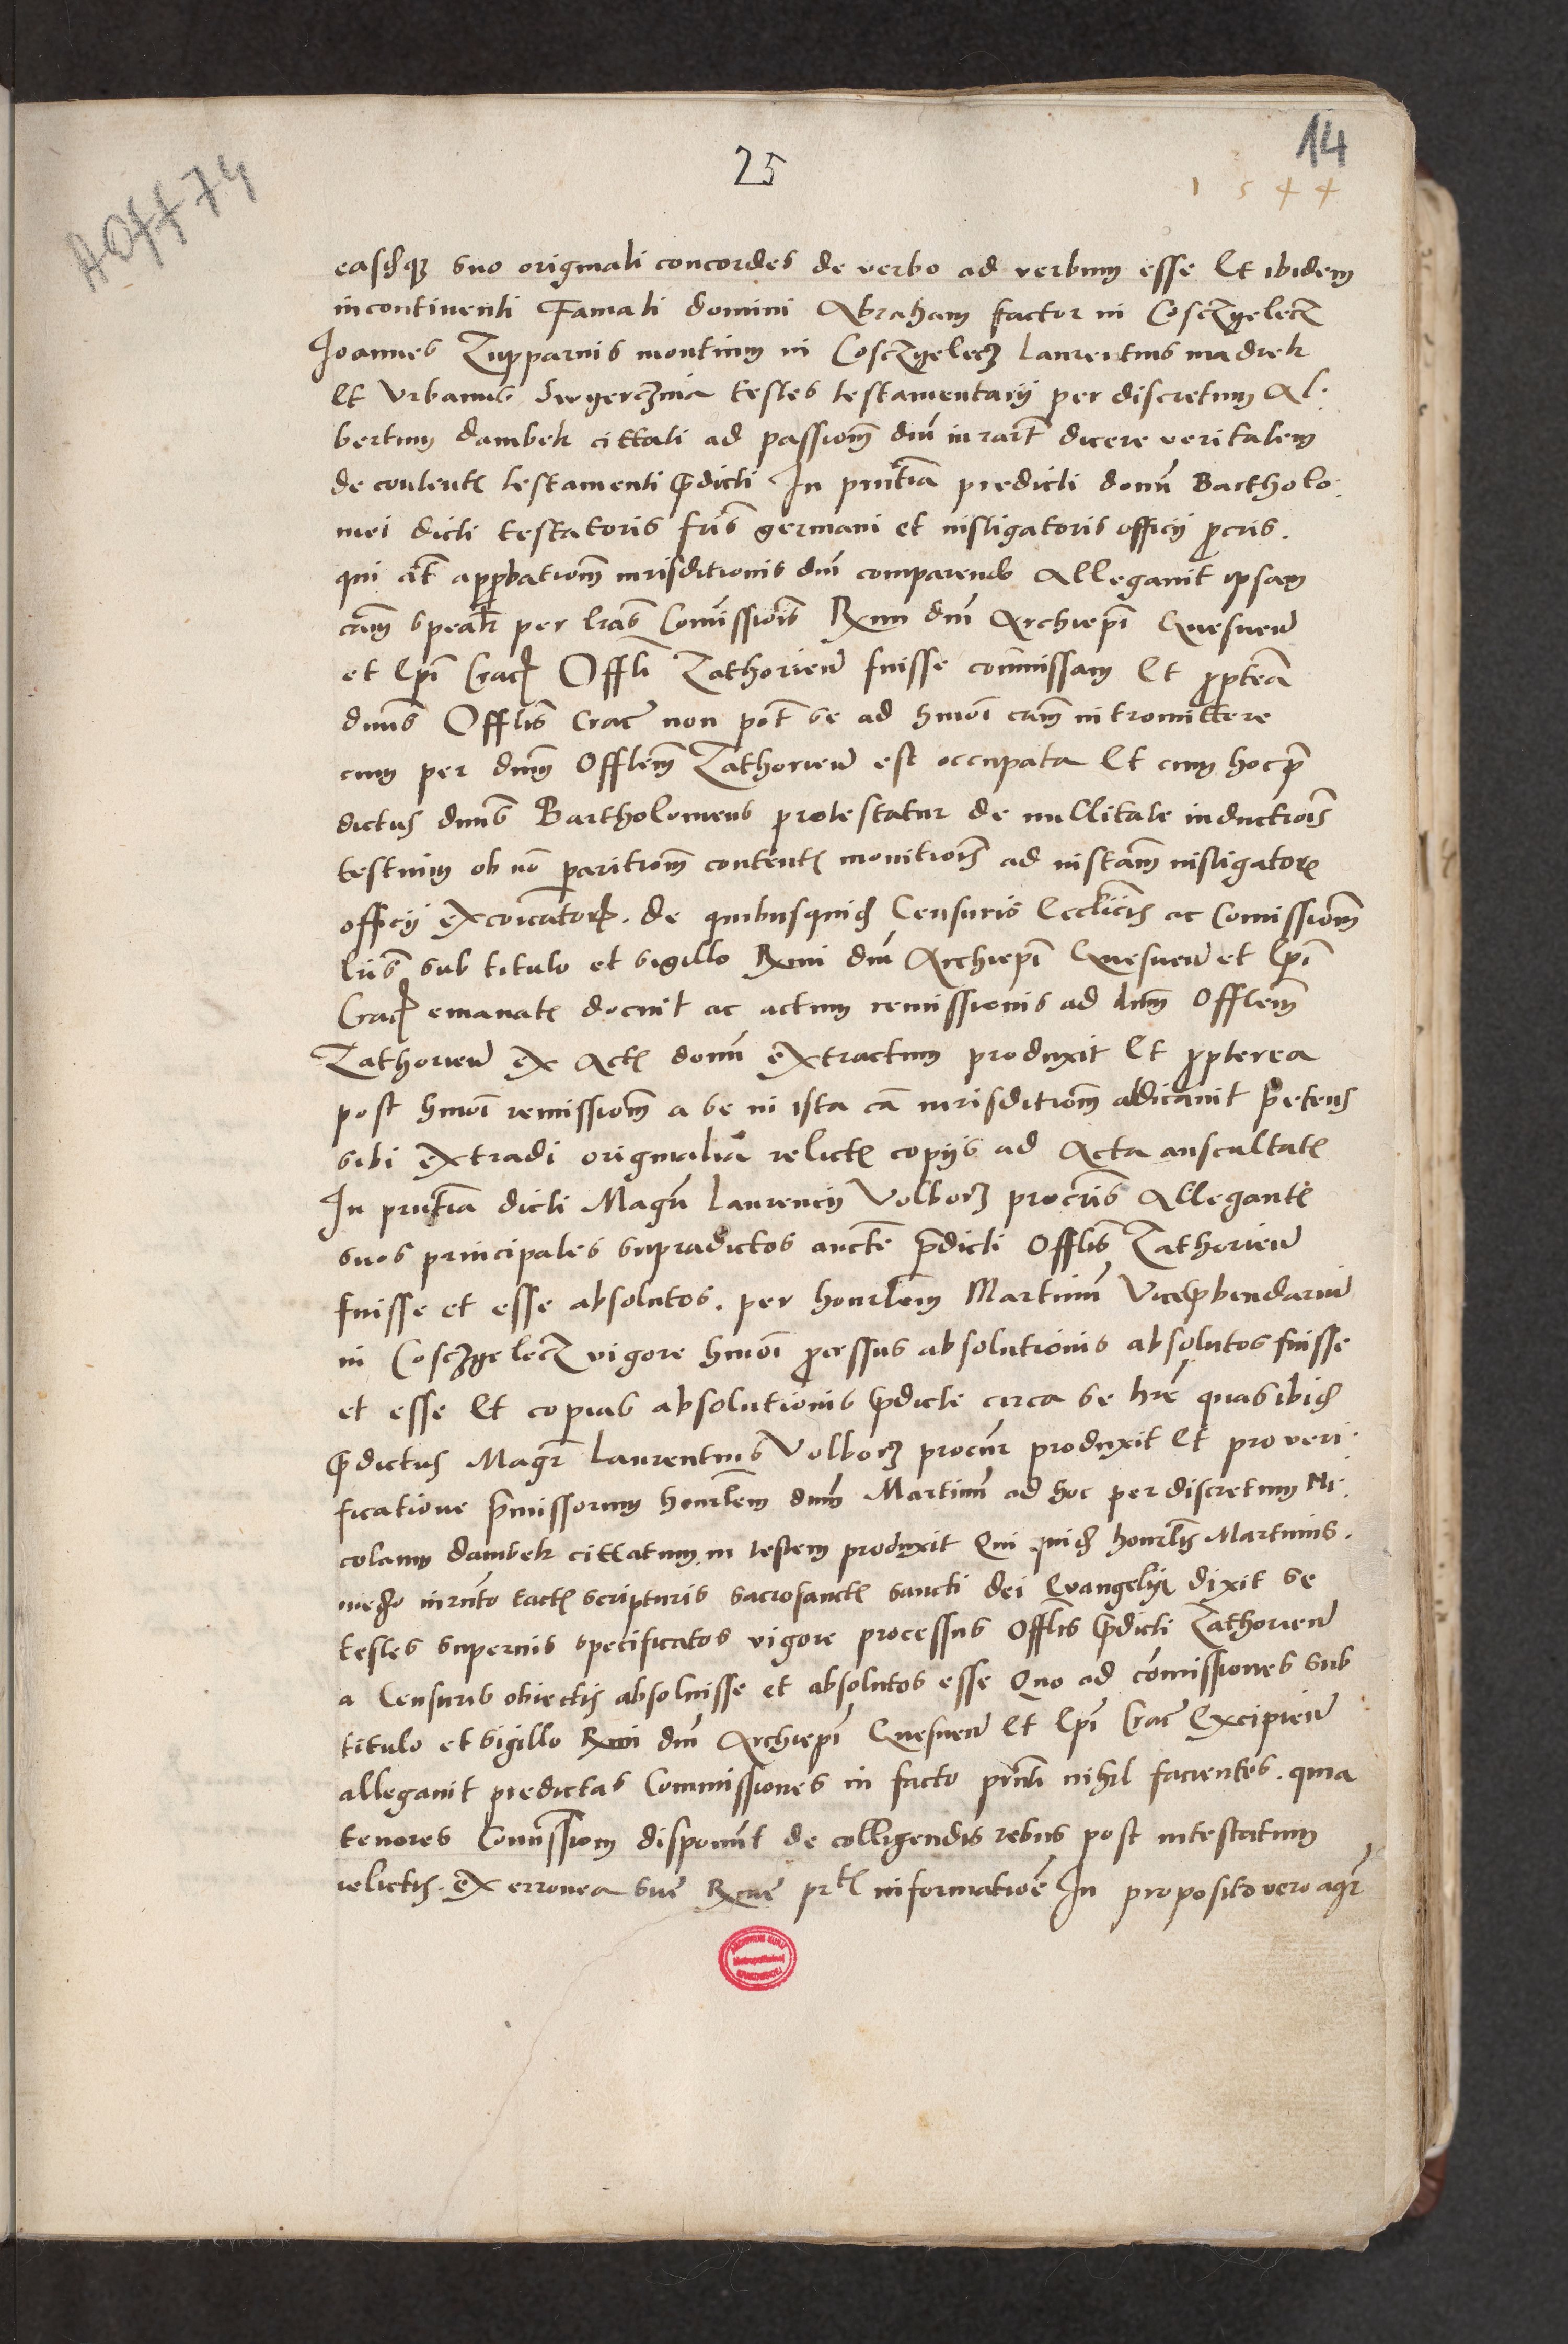 14
25
1544
AOff 74
easdẽque suo originali concordes de verbo ad verbum esse Et ibidem
incontinenti Famati domini Abraham factor in Cosczyelecz
Ioannes Zupparius montium in Cosczyelecz Laurentius madrek
Et Urbanus testes testamentarij per discretum Al-
bertum dambek cittati ad passionẽ dni iurarũt dicere veritatem
de contentis testamenti p̃dicti In pñtia predicti domĩ Bartholo-
mei dicti testatoris fr̃is germani et instigatoris officij p̃cris.
qui cit̃ app̃bationẽ iurisditionis dni comparendo Allegavit ipsam
cãm per lr̃as Com̃issiõis Rmi dni Archiepĩ Gnesneñ
et Epĩ Crac̃ Offli Zathorieñ fuisse commissam Et p̃pterea
dnũs Offlis Crac̃ non pot̃ se ad hmõi cãm intromittere
cum per dnm Offlem Zathorieñ est occupata Et cum hoc p̃
dictus dnũs Bartholomeus protestatur de nullitate inductiõis
testium ob nõ paritionẽ contentis monitiõis ad instãm instigatoris
officij excõicatorũ. de quibusquid̃ Censuris Eccl̃icis ac Comissionũ
lr̃is sub titulo et sigillo Rmi dni Archiepĩ Gnesneñ et Epĩ
Crac̃ emanatis docuit ac actum remissionis ad dnm Offlem
Zathorieñ ex Actis domĩ extractum produxit Et p̃pterea
post hmõi remissionẽ a se in ista cã iurisditionẽ abdicavit p̃tens
sibi extradi originalia relictis copijs ad Acta auscultatis
In pñtia dicti Magr̃i Laurencij Volborz procr̃is Allegantis
suos principales supradictos auct̃e p̃dicti Offlis Zathorieñ
fuisse et esse absolutos. per honr̃lem Martinũ Vicep̃bendariũ
in Cosczyelecz vigore hmõi p̃cessus absolutionis absolutos fuisse
et esse Et copias absolutionis p̃dicte circa se hr̃e quas ibid̃
p̃dictus Magr̃ Laurentius Volborz procũr produxit Et pro veri-
ficatione p̃missorum honr̃lem dnm Martinũ ad hoc per discretum Ni-
colaum dambek cittatum in testem produxit Qui quid̃ honr̃lis Martinus.
medio iurãto tactis scripturis sacrosanctis sancti dei Evangelij dixit se
testes superius specificatos vigore processus Offlis p̃dicti Zathorieñ
a Censuris obiectis absolvisse et absolutos esse Quo ad com̃issiones sub
titulo et sigillo Rmi dni Archiepĩ Gnesneñ Et Epĩ Crac̃ Excipieñ
allegavit predictas Commissiones in facto pr̃nti nihil facientes. quia
tenores Comissionũ disponũt de colligendis rebus post intestatum
relictis. ex erronea sue Rme pr̃tis informatiõe In proposito vero agr̃